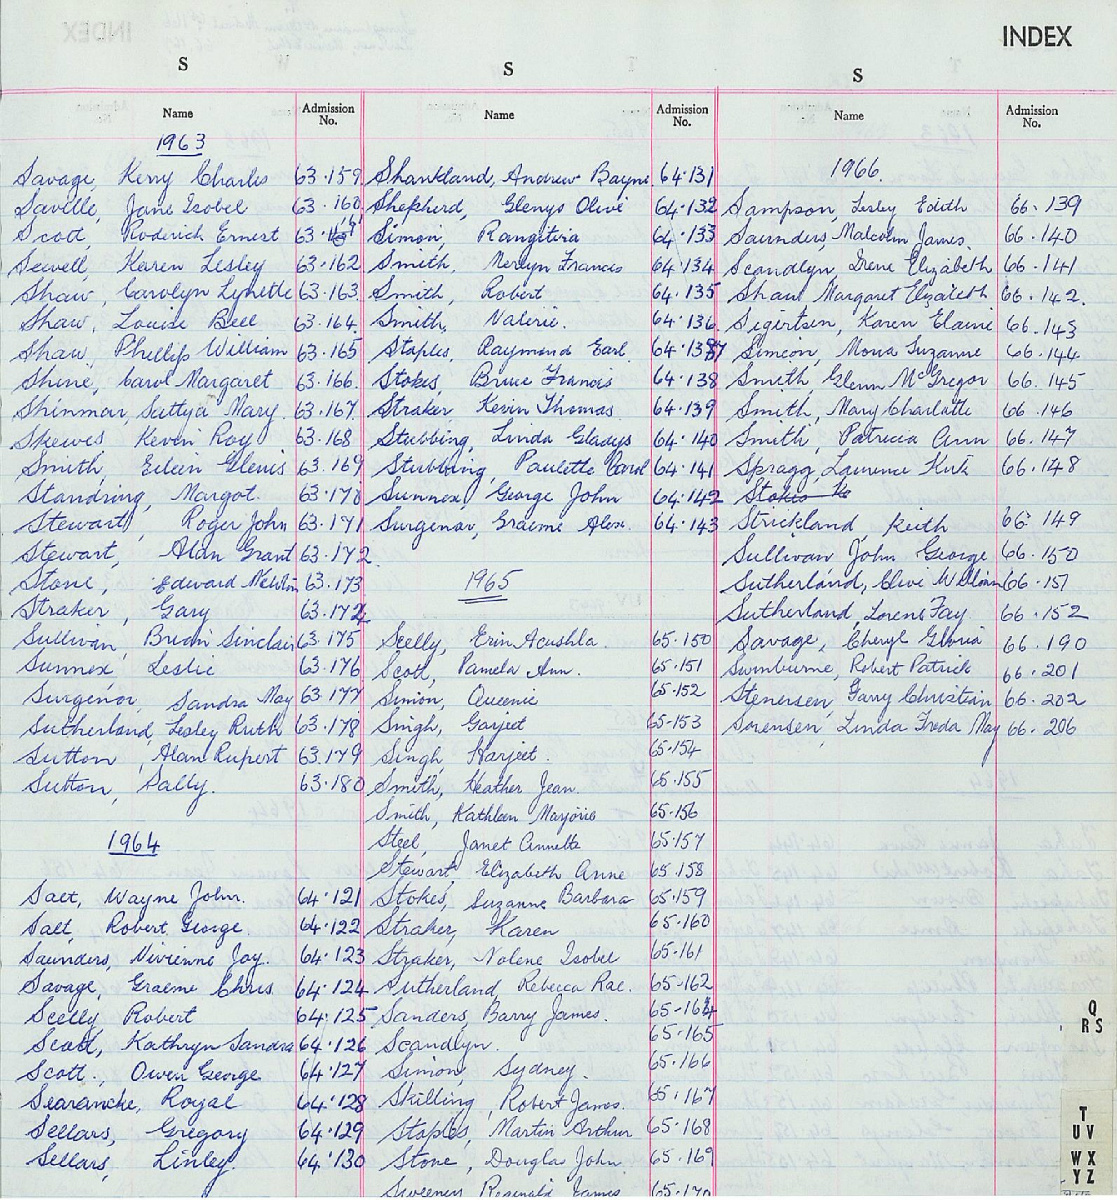 INDEX
S
Name Admission No.
1963
Savage, Kerry Charles 63.159
Saville, Jane Isobel 63.160
Scott, Roderick Ernest 63.161
Sewell, Karen Lesley 63.162
Shaw, Carolyn Lynette 63.163
Shaw, Louise Bell 63.164
Shaw, Phillip William 63.165
Shine, Carol Margaret 63.166
Shinmar, Sattya Mary. 63.167
Skewes Kevin Roy 63.168
Smith, Eileen Glenis 63.169
Standring, Margot. 63.170
Stewart, Roger John 63.171
Stewart, Alan Grant 63.172
Stone, Edward 63.173
Straker, Gary 63.174
Sullivan, Brian Sinclair 63.175
Sunnex Leslie 63.176
Surgenor, Sandra May 63.177
Sutherland, Lesley Ruth 63.178
Sutton, Alan Rupert 63.179
Sutton, Sally. 63.180
1964
Salt, Wayne John. 64.121
Salt, Robert George. 64.122
Saunders, Vivienne Joy. 64.123
Savage, Graeme Chris 64.124
Scelly Robert 64.125
Scott, Kathryn Sandra 64.126
Scott., Owen George 64.127
Searancke, Royal 64.128
Sellars, Gregory 64.129
Sellars, Linley. 64.130
S
Name Admission No.
Shankland, Andrew Bayne 64.131
Shepherd, Glenys Olive 64.132
Simon, Rangitira 64.133
Smith, Mervyn Francis 64.134
Smith, Robert 64.135
Smith, Valerie. 64.136
Staples, Raymond Earl. 64.137
Stokes, Bruce Francis 64.138
Straker Kevin Thomas. 64.139
Stubbing, Linda Gladys 64.140
Stubbing, Paulette Carol 64.141
Sunnex, George John 64.142
Surgenor, Graeme Alex. 64.143
1965
Scelly, Erin Acushla. 65.150
Scott, Pamela Ann. 65.151
Simon, Queenie 65.152
Singh, Garjeet 65-153
Singh Harjeet. 65.154
Smith, Heather Jean. 65.155
Smith, Kathleen Marjorie 65.156
Steel, Janet Annette 65.157
Stewart, Elizabeth Anne 65.158
Stokes, Suzanne Barbara 65.159
Straker, Karen 65.160
Straker, Nolene Isobel 65.161
Sutherland, Rebecca Rae. 65.162
Sanders, Barry James. 65.164
Scandlyn. 65.165
Simon, Sydney. 65.166
Skilling, Robert James. 65.167
Staples, Martin Arthur 65.168
Stone, Douglas John. 65.169
Sweeney Reginald James 65.170
S
Name Admission No.
1966.
Sampson, Lesley Edith 66.139
Saunders, Malcolm James. 66.140
Scandlyn, Irene Elizabeth 66.141
Shaw Margaret Elizabeth 66.142.
Sigertsen, Karen Elaine 66.143
Simeon, Mona Suzanne 66.144
Smith Glenn McGregor 66.145
Smith, Mary Charlotte 66.146
Smith, Patricia Ann 66.147
Spragg, Laurence Kirk 66.148
Stokes
Strickland Keith 66.149
Sullivan John George 66.150
Sutherland, Clive W 66.151
Sutherland, Lorens Fay. 66.152
Savage, Cheryl Gloria 66.190
Swinburne, Robert Patrick 66.201
Stenersen, Garry Christian 66.202
Sorensen, Linda Freda May 66.206
Q
R S
T
U V
W X
Y Z